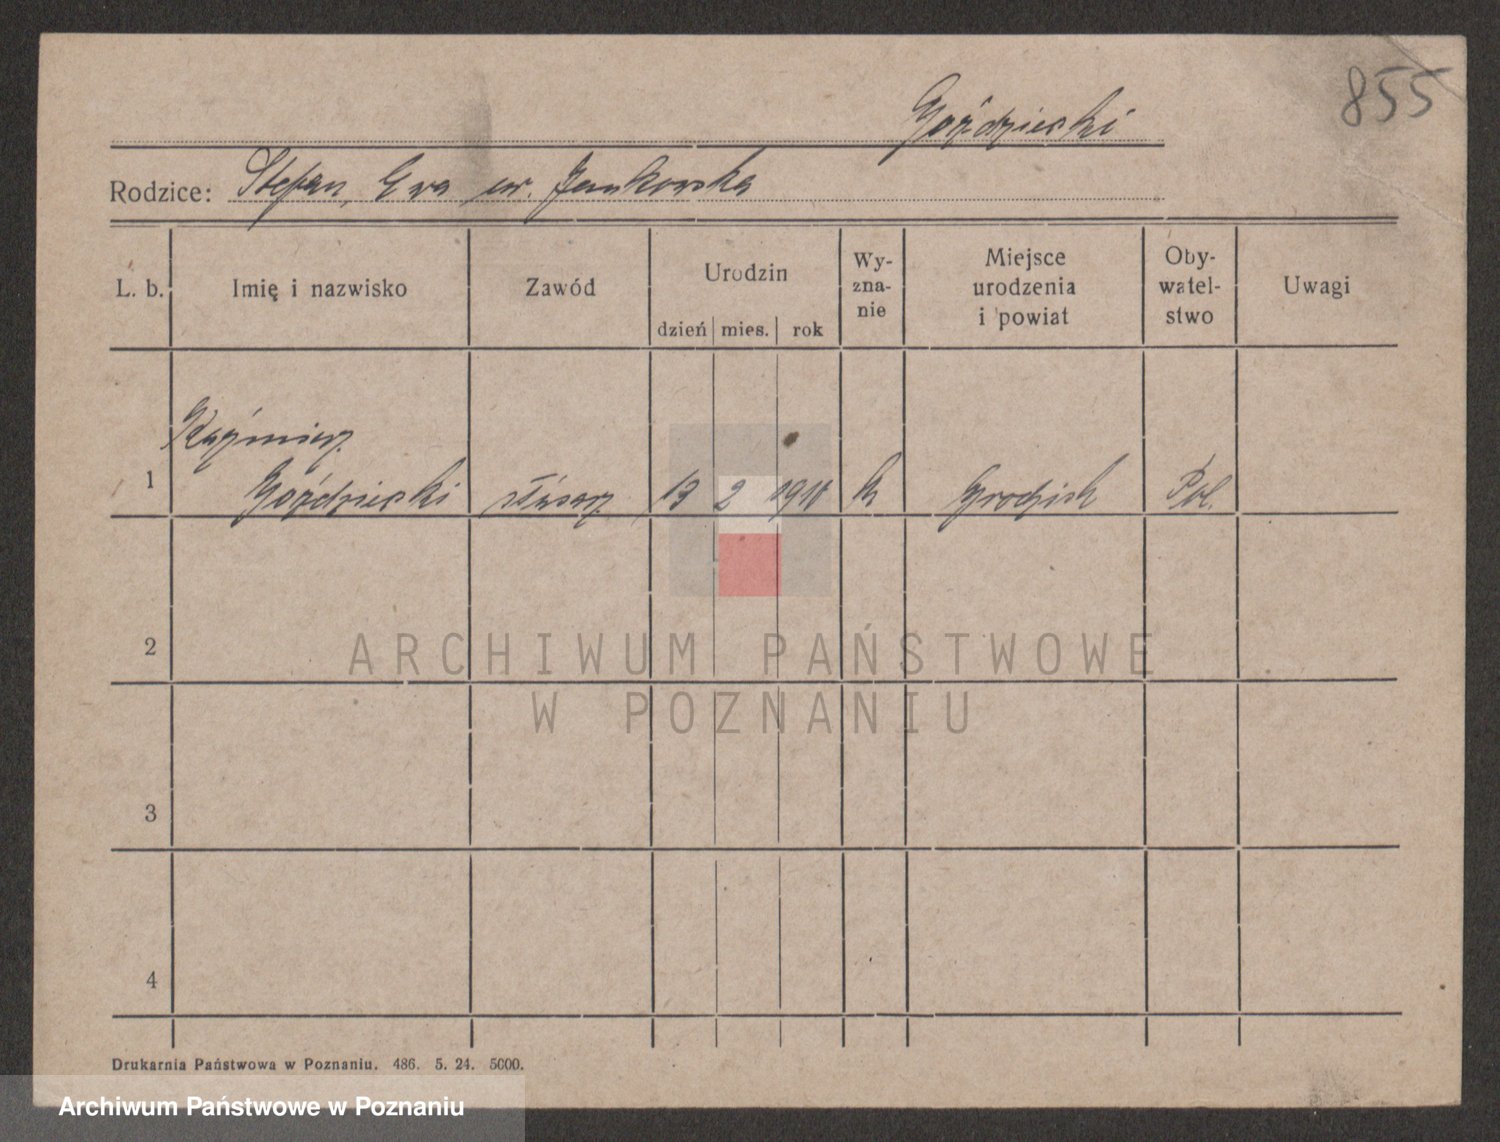 855
Goździecki
Rodzice: Stefan, Ewa ur. Jankowska
L. b. Imię i nazwisko Zawód Urodzin dzień mies. rok Wy-zna-nie Miejsce urodzenia i powiat Oby-watel-stwo Uwagi
Kaźmierz
1 Goździecki ślusarz 13 2 k Grodzisk Pol.
2
3
4
ARCHIWUM PAŃSTWOWE
W POZNANIU
Drukarnia Państwowa w Poznaniu. 486. 5. 24. 5000.
Archiwum Państwowe w Poznaniu